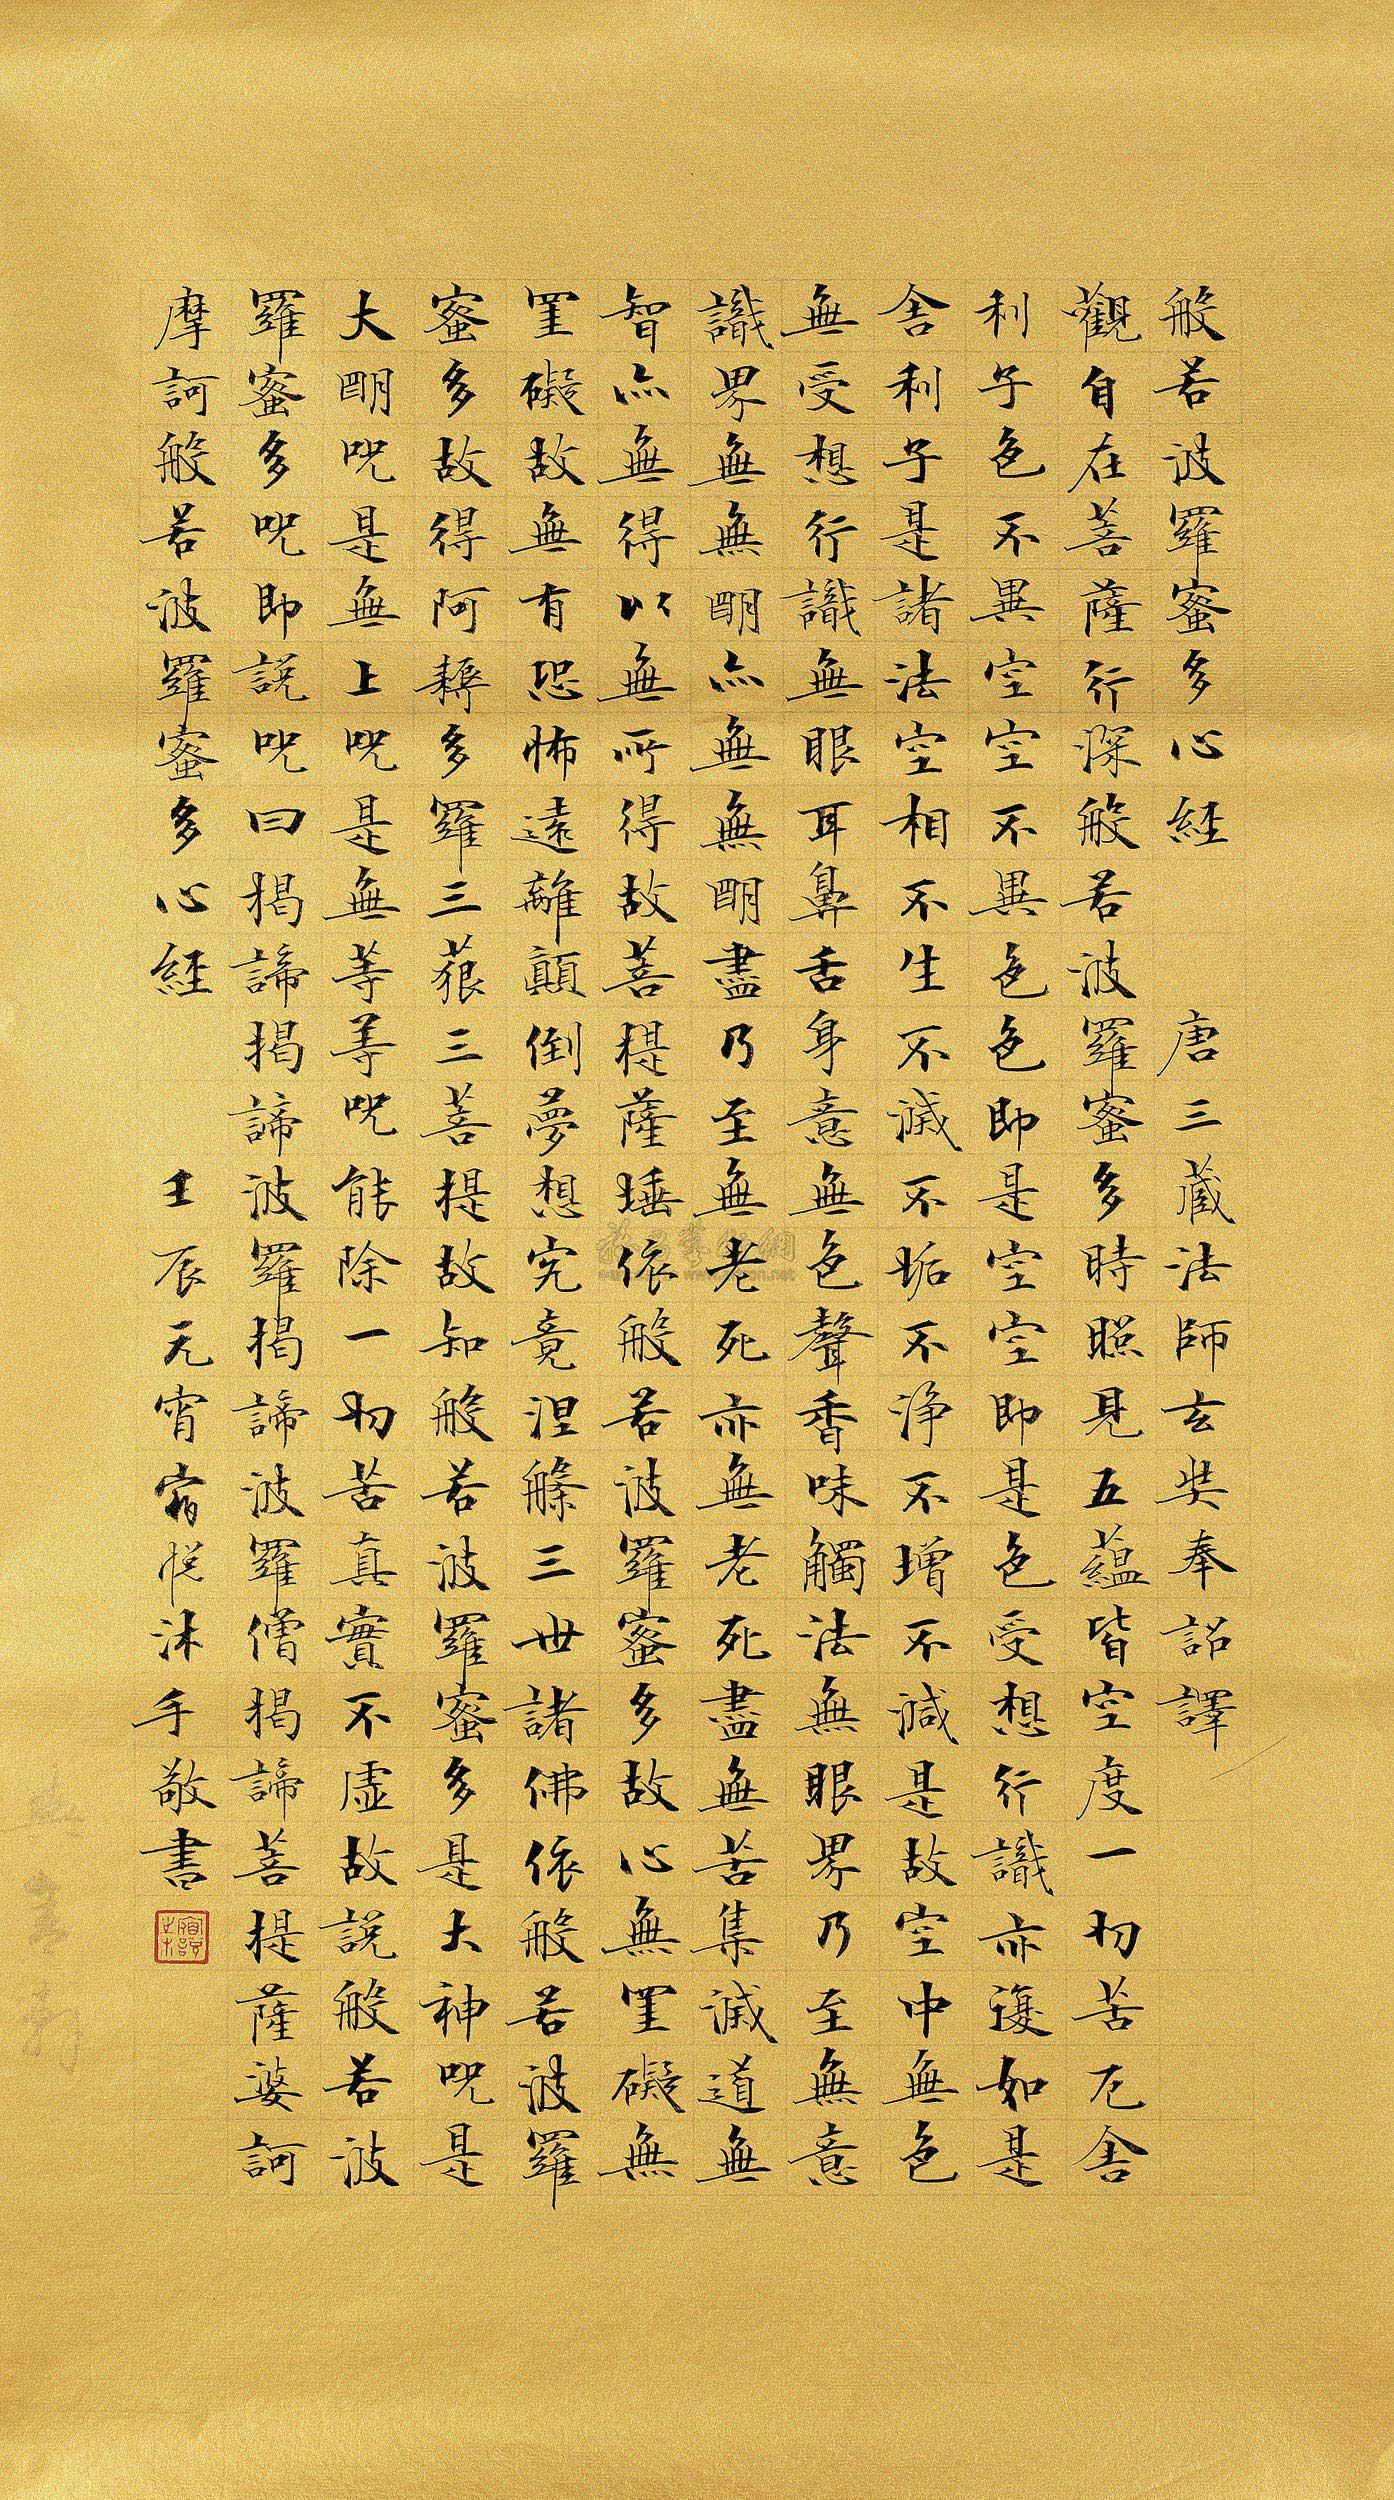 般若波羅蜜多心經 唐三藏法師玄奘奉詔譯
觀自在菩薩行深般若波羅蜜多時照見五蘊皆空度一切苦厄舍
利子色不異空空不異色色即是空空即是色受想行識亦復如是
舍利子是諸法空相不生不滅不垢不淨不增不減是故空中無色
無受想行識無眼耳鼻舌身意無色聲香味觸法無眼界乃至無意
識界無無明亦無無明盡乃至無老死亦無老死盡無苦集滅道無
智亦無得以無所得故菩提薩埵依般若波羅蜜多故心無罣礙無
罣礙故無有恐怖遠離顛倒夢想究竟涅槃三世諸佛依般若波羅
蜜多故得阿耨多羅三藐三菩提故知般若波羅蜜多是大神咒是
大明咒是無上咒是無等等咒能除一切苦真實不虛故說般若波
羅蜜多咒即說咒曰揭諦揭諦波羅揭諦波羅僧揭諦菩提薩婆訶
摩訶般若波羅蜜多心經 壬辰元宵宿悅沐手敬書